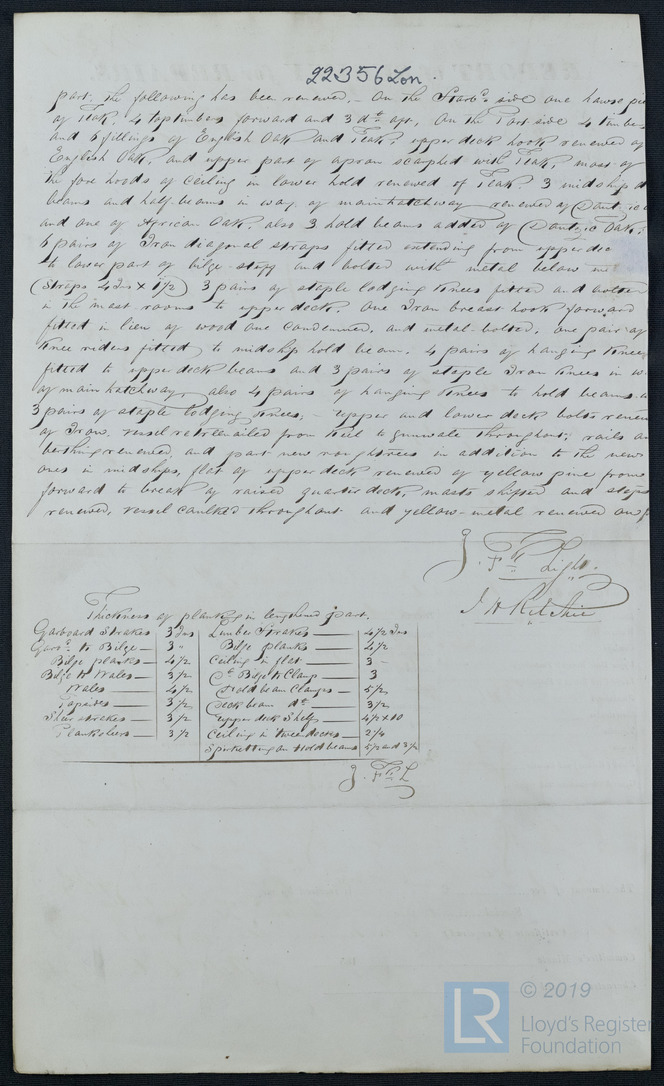 22356 Lon.
part. the following has been renewed,- On the Starb.d side one hawse pie
of Teak. 4 top timbers forward and 3 d.o aft, On the Port side 4 timbe
and 6 fillings of English Oak and Teak, upper deck hook renewed of
English Oak, and upper part of apron scarphed with Teak, most of
the fore hoods of Ceiling in lower hold renewed of Teak. 3 midship d
beams and half beams in way of main hatchway renewed of Dantzic
and one of African Oak. also 3 hold beams added of Dantzic Oak.
6 pairs of Iron diagonal straps fitted extending from upper dec
to lower part of bilge - stopp and bolted with metal below
(Straps 4 Ins x 1/2) 3 pairs of staple lodging Knees fitted and bolted
in the mast rooms to upper deck. One Iron breast hook forward
fitted in lieu of wood one condemned, and metal bolted. one pair of
Knee riders fitted to midship hold beam. 4 pairs of hanging Knees
fitted to upper deck beams and 3 pairs of staple Iron Knees in w
of main hatchway, also 4 pairs of hanging Knees to hold beams a
3 pairs of staple lodging Knees, - upper and lower deck bolts renew
of Iron. vessel retreenailed from keel to gunwale throughout; rails a
berthing renewed, and part new roughtrees in addition to the new
ones in midships, flat of upper deck renewed of yellow pine from
forward to break of raised quarter deck, masts shipped and steps
renewed, vessel caulked throughout and yellow-metal renewed on
Light.
J H Ritchie
Thickness of planking in lengthened part.
Garboard Strakes 3 Ins Limber Strakes 4 1/2 Ins
Garb.d to Bilge 3 " Bilge planks 4 1/2
Bilge planks 4 1/2 Ceiling in flat 3 -
Bilge to Wales 3 1/2 D.o Bilge to Clamp 3
Wales 4 1/2 Hold beam Clamps 5 1/2
Topsides 3 1/2 Deck beam d.o 3 1/2
Sheer strakes 3 1/2 Upper deck Shelf 4 1/2 x 10
Planksheers 3 1/2 Ceiling in 'tween decks 2 1/4
Spirketting on Hold beams 5 1/2 and 3 1/2
LR
© 2019
Lloyd's Register
Foundation